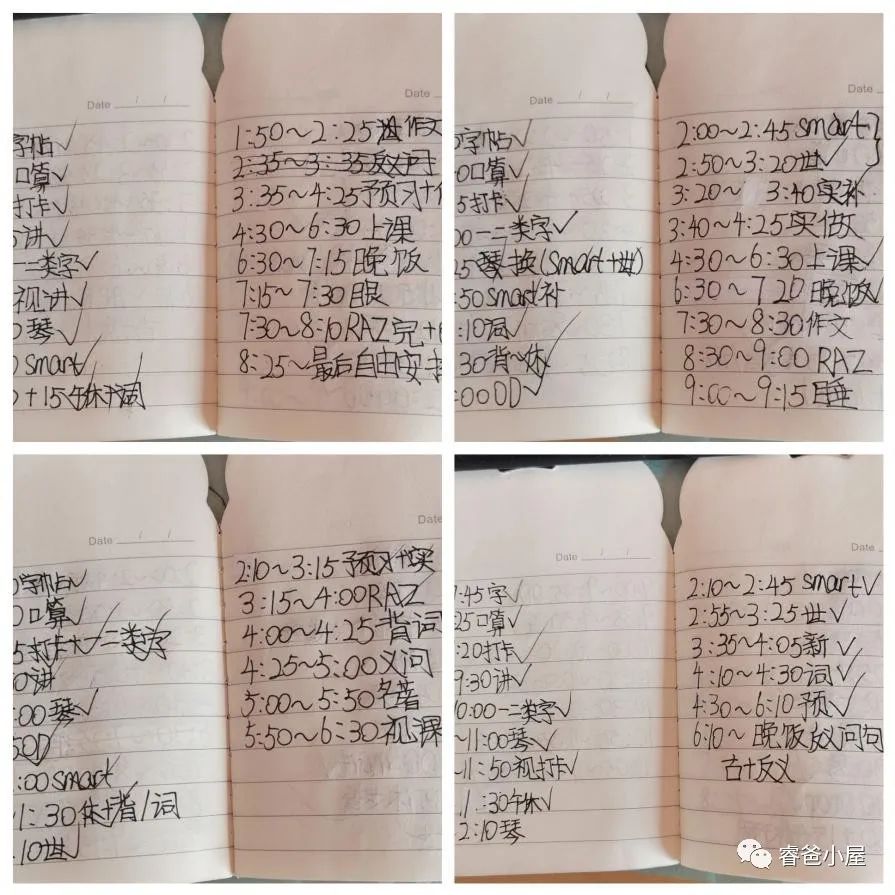 Date / /
字帖√
口算√
打卡√
讲√
一二类字√
视讲√
琴√
smart√
+15午休+词
Date
1:50~2:25世作文
2:35~3:35反义问
3:35~4:25预习+
4:30~6:30上课
6:30~7:15晚饭
7:15~7:30眼
7:30~8:10RAZ完+
8:25~最后自由安
Date / /
字帖√
0口算√
5打卡√
00一二类字√
25琴换(smart+世)
:50smart补
:10词√
30背~休
:00OD√
Date
2:00~2:45 smart
2:50~3:20世√
3:20~3:40实补
3:40~4:25实做
4:30~6:30上课√
6:30~7 20晚饭√
7:30~8:30作文
8:30~9:00 RAZ
9:00~9:15睡
Date / /
字帖√
口算√
5打卡+一二类字
0讲√
:00琴√
50D√
:00smart
1:30休+背/词
10世√
Date
2:10~3:15预习+实
3:15~4:00RAZ
4:00~4:25背词
4:25~5:00义问
5:00~5:50名著
5:50~6:30视课
Date / /
7:45字√
25口算√
:20打卡√
9:30讲√
10:00一二类字√
~11:00琴√
~11:50视打卡√
1:30午休√
2:10琴
Date
2:10~2:45 smart√
2:55~3:25世√
3:35~4:05新√
4:10~4:30词√
4:30~6:10预√
6:10~晚饭反问句
古+反义
睿爸小屋